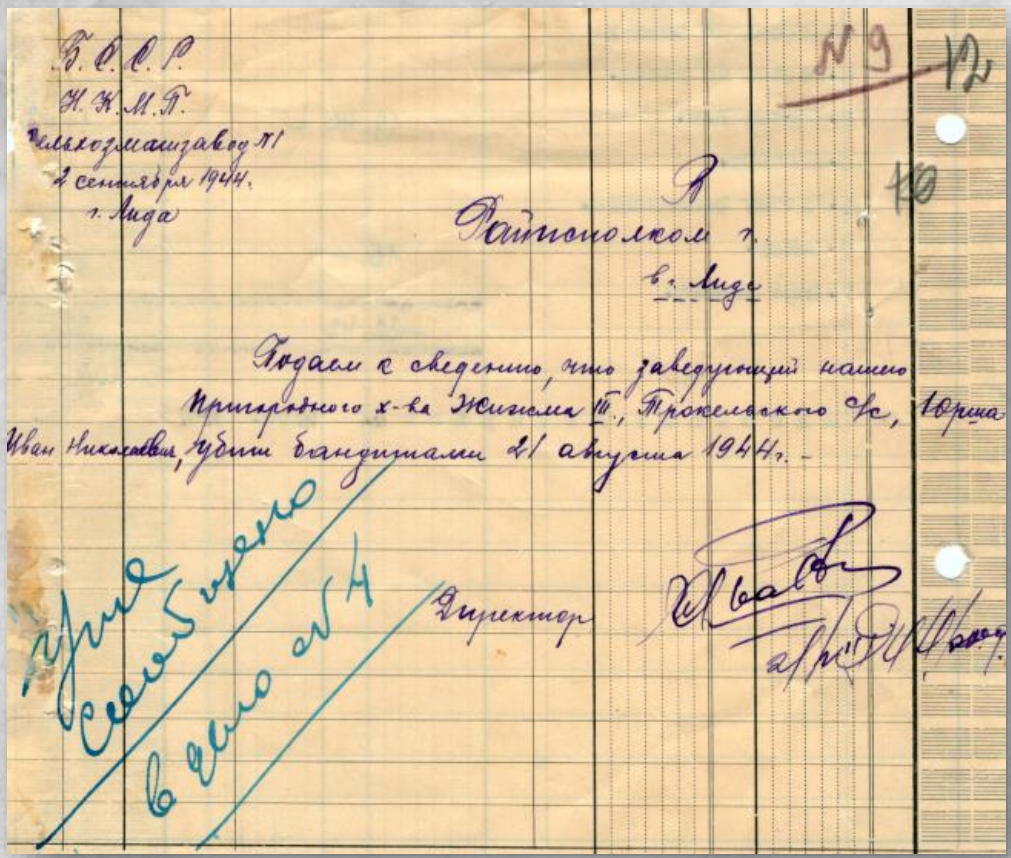 Б.С.С.Р.
Н.К.М.П.
сельхозмашзавод №1
2 сентября 1944.
г. Лида
N 9
12
В
Райисполком г.
в г. Лиде
Подаем к сведению, что заведующий нашего
пригородного х-ва Жижма III., Трокельского с/с, Юрша
Иван Николаевич, убит бандитами 21 августа 1944г. -
Директор
Уже
сообщено
в дело №4